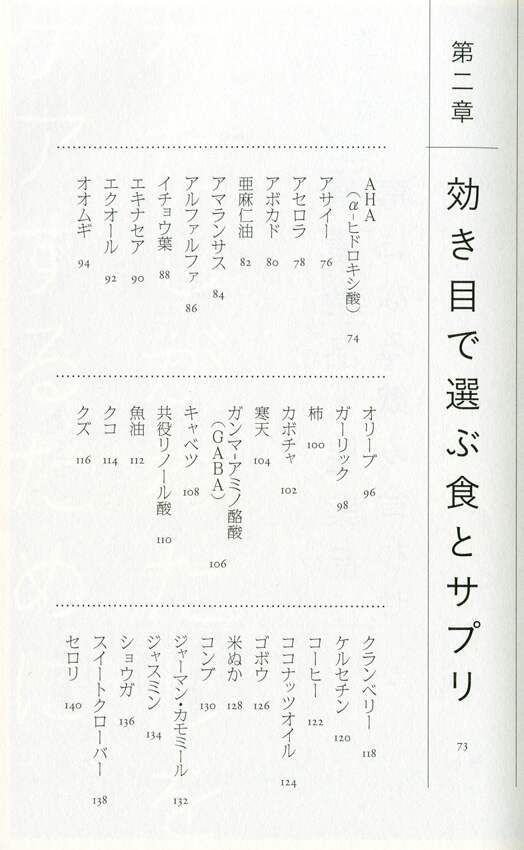 第二章
効き目で選ぶ食とサプリ 73
AHA
(α-ヒドロキシ酸) 74
アサイー 76
アセロラ 78
アボカド 80
亜麻仁油 82
アマランサス 84
アルファルファ 86
イチョウ葉 88
エキナセア 90
エクオール 92
オオムギ 94
オリーブ 96
ガーリック 98
柿 100
カボチャ 102
寒天 104
ガンマ-アミノ酪酸
(GABA) 106
キャベツ 108
共役リノール酸 110
魚油 112
クコ 114
クズ 116
クランベリー 118
ケルセチン 120
コーヒー 122
ココナッツオイル 124
ゴボウ 126
米ぬか 128
コンブ 130
ジャーマン・カモミール 132
ジャスミン 134
ショウガ 136
スイートクローバー 138
セロリ 140